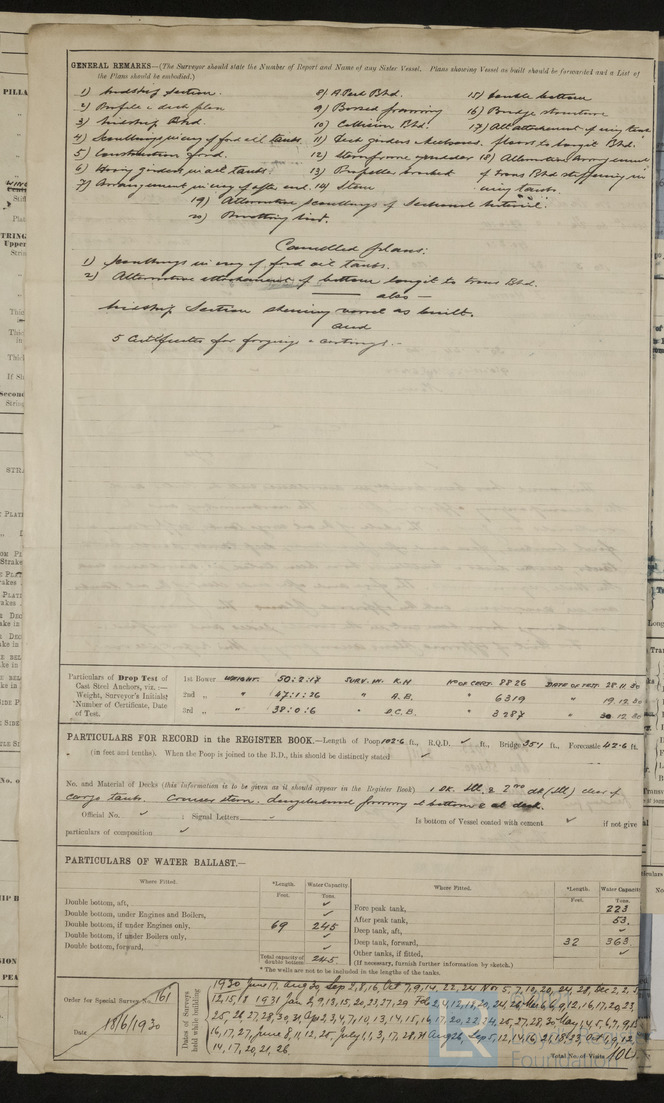 GENERAL REMARKS—(The Surveyor should state the Number of Report and Name of any Sister Vessel. Plans showing Vessel as built should be forwarded and a List of
the Plans should be embodied.)
1) Midship Section. 8) A Peak Bhd. 15) Double bottom
2) Profile & deck plan 9) Bossed framing 16) Bridge structure
3) Midship Bhd. 10) Collision Bhd. 17) Alt attachment of
4) Scantlings in way of ford oil tanks. 11) Deck girders floors to longit Bhd.
5) Construction ford. 12) Sternframe & rudder 18) Alternative Arrangement
6) girders in oil tanks. 13) Propeller bracket of trans Bhd stiffening in
7) Arrangement in way of after end. 14) Stem way tanks.
19) Alternative scantlings of Sectional material.
20)
Cancelled plans.
1) Scantlings in way of ford oil tanks.
2) Alternative attachment of bottom longit to trans Bhd.
also —
Midship Section shewing vessel as built.
and
5 Certificates for forgings & castings.
Particulars of Drop Test of
Cast Steel Anchors, viz.:—
Weight, Surveyor's Initials,
Number of Certificate, Date
of Test.
1st Bower WEIGHT. 50:2:17 SURV. IN. R.H Nº OF CERT. 8826 DATE OF TEST. 28.11.30
2nd „ " 47:1:26 " A.B. " 6319 " 19.12.30
3rd „ " 38:0:6 " D.C.B. " 3287 " 30 12.30
PARTICULARS FOR RECORD in the REGISTER BOOK.—Length of Poop 102.6 ft., R.Q.D. ✓ ft., Bridge 35.1 ft., Forecastle 42.6 ft.
(in feet and tenths). When the Poop is joined to the B.D., this should be distinctly stated ✓
No. and Material of Decks (this information is to be given as it should appear in the Register Book) 1 DK. Stl. & 2nd dk (Stl) clear of
cargo tanks. Cruiser stern. Longitudinal framing at bottom & at deck.
Official No. ✓ ; Signal Letters ✓ Is bottom of Vessel coated with cement ✓ if not give
particulars of composition ✓
PARTICULARS OF WATER BALLAST.—
Where Fitted. *Length. Water Capacity. Where Fitted. *Length. Water Capacity
Feet. Tons. Feet. Tons.
Double bottom, aft, ✓
Double bottom, under Engines and Boilers, ✓
Double bottom, if under Engines only, 69 245
Double bottom, if under Boilers only, ✓
Double bottom, forward, ✓
Total capacity of double bottom 245.
Fore peak tank, 223
After peak tank, 53.
Deep tank, aft, ✓
Deep tank, forward, 32 363
Other tanks, if fitted, ✓
(If necessary, furnish further information by sketch.)
* The wells are not to be included in the lengths of the tanks.
Order for Special Survey No. 161
Date 18/6/1930
Dates of Surveys held while building
1930 June 17, Aug 30, Sep 2, 8, 16, Oct 7, 9, 14, 22, 24 Nov 5, 7, 10, 20, 24, 28, Dec 2,
12, 15, 18 1931 Jan 2, 9, 13, 15, 20, 23, 27, 29 Feb 2, 4, 12, 20, 24, Mar 6, 9, 12, 16, 17, 20, 23,
25, 26, 27, 28, 30, 31, Apr 2, 3, 4, 7, 10, 13, 14, 15, 16, 17, 20, 22, 24, 25, 27, 28, 30 May 1, 4, 5, 6, 7, 9, 12
16, 17, 27, June 8, 11, 12, 25, July 1, 3, 17, 28, 31 Aug 26, Sep 5, 12, 14, 16, 21, 18, 23, Oct 1, 9, 12,
14, 17, 20, 21, 26.
Total No. of Visits 106.
Foundation